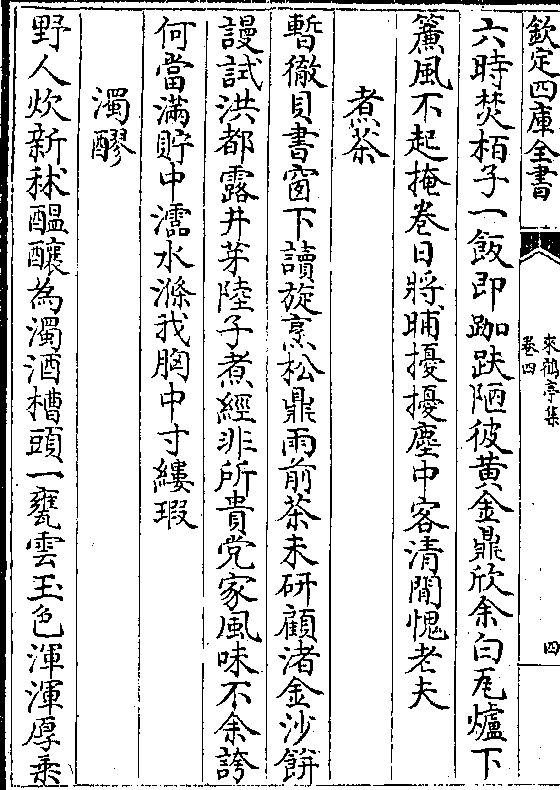 欽定四庫全書
來鶴亭集
卷四
四
六時焚栢子一飯即跏趺陋彼黄金鼎欣余白瓦爐下
簾風不起掩卷日將晡擾擾塵中客清閒愧老夫
煮茶
暫徹貝書窗下讀旋烹松鼎雨前茶未研顧渚金沙餅
謾試洪都露井芽陸子煮經非所貴党家風味不余誇
何當滿貯中濡水滌我胸中寸縷瑕
濁醪
野人炊新秫醖釀為濁酒槽頭一甕雲玉色渾渾厚乗